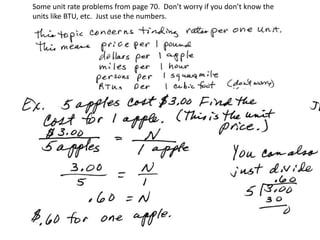 Some unit rate problems from page 70. Don't worry if you don't know the
units like BTU, etc. Just use the numbers.
This topic concerns finding rates per one unit.
This means price per 1 pound
dollars per 1 apple
miles per 1 hour
persons per 1 square mile
BTUs per 1 cubic foot (don't worry)
Ex. 5 apples cost $3.00 Find the
cost for 1 apple. (This is the unit
price.)
$3.00 / 5 apples = N / 1 apple
3.00 / 5 = N / 1
.60 = N
$.60 for one apple.
You can also
just divide
.60
5)3.00
30
0